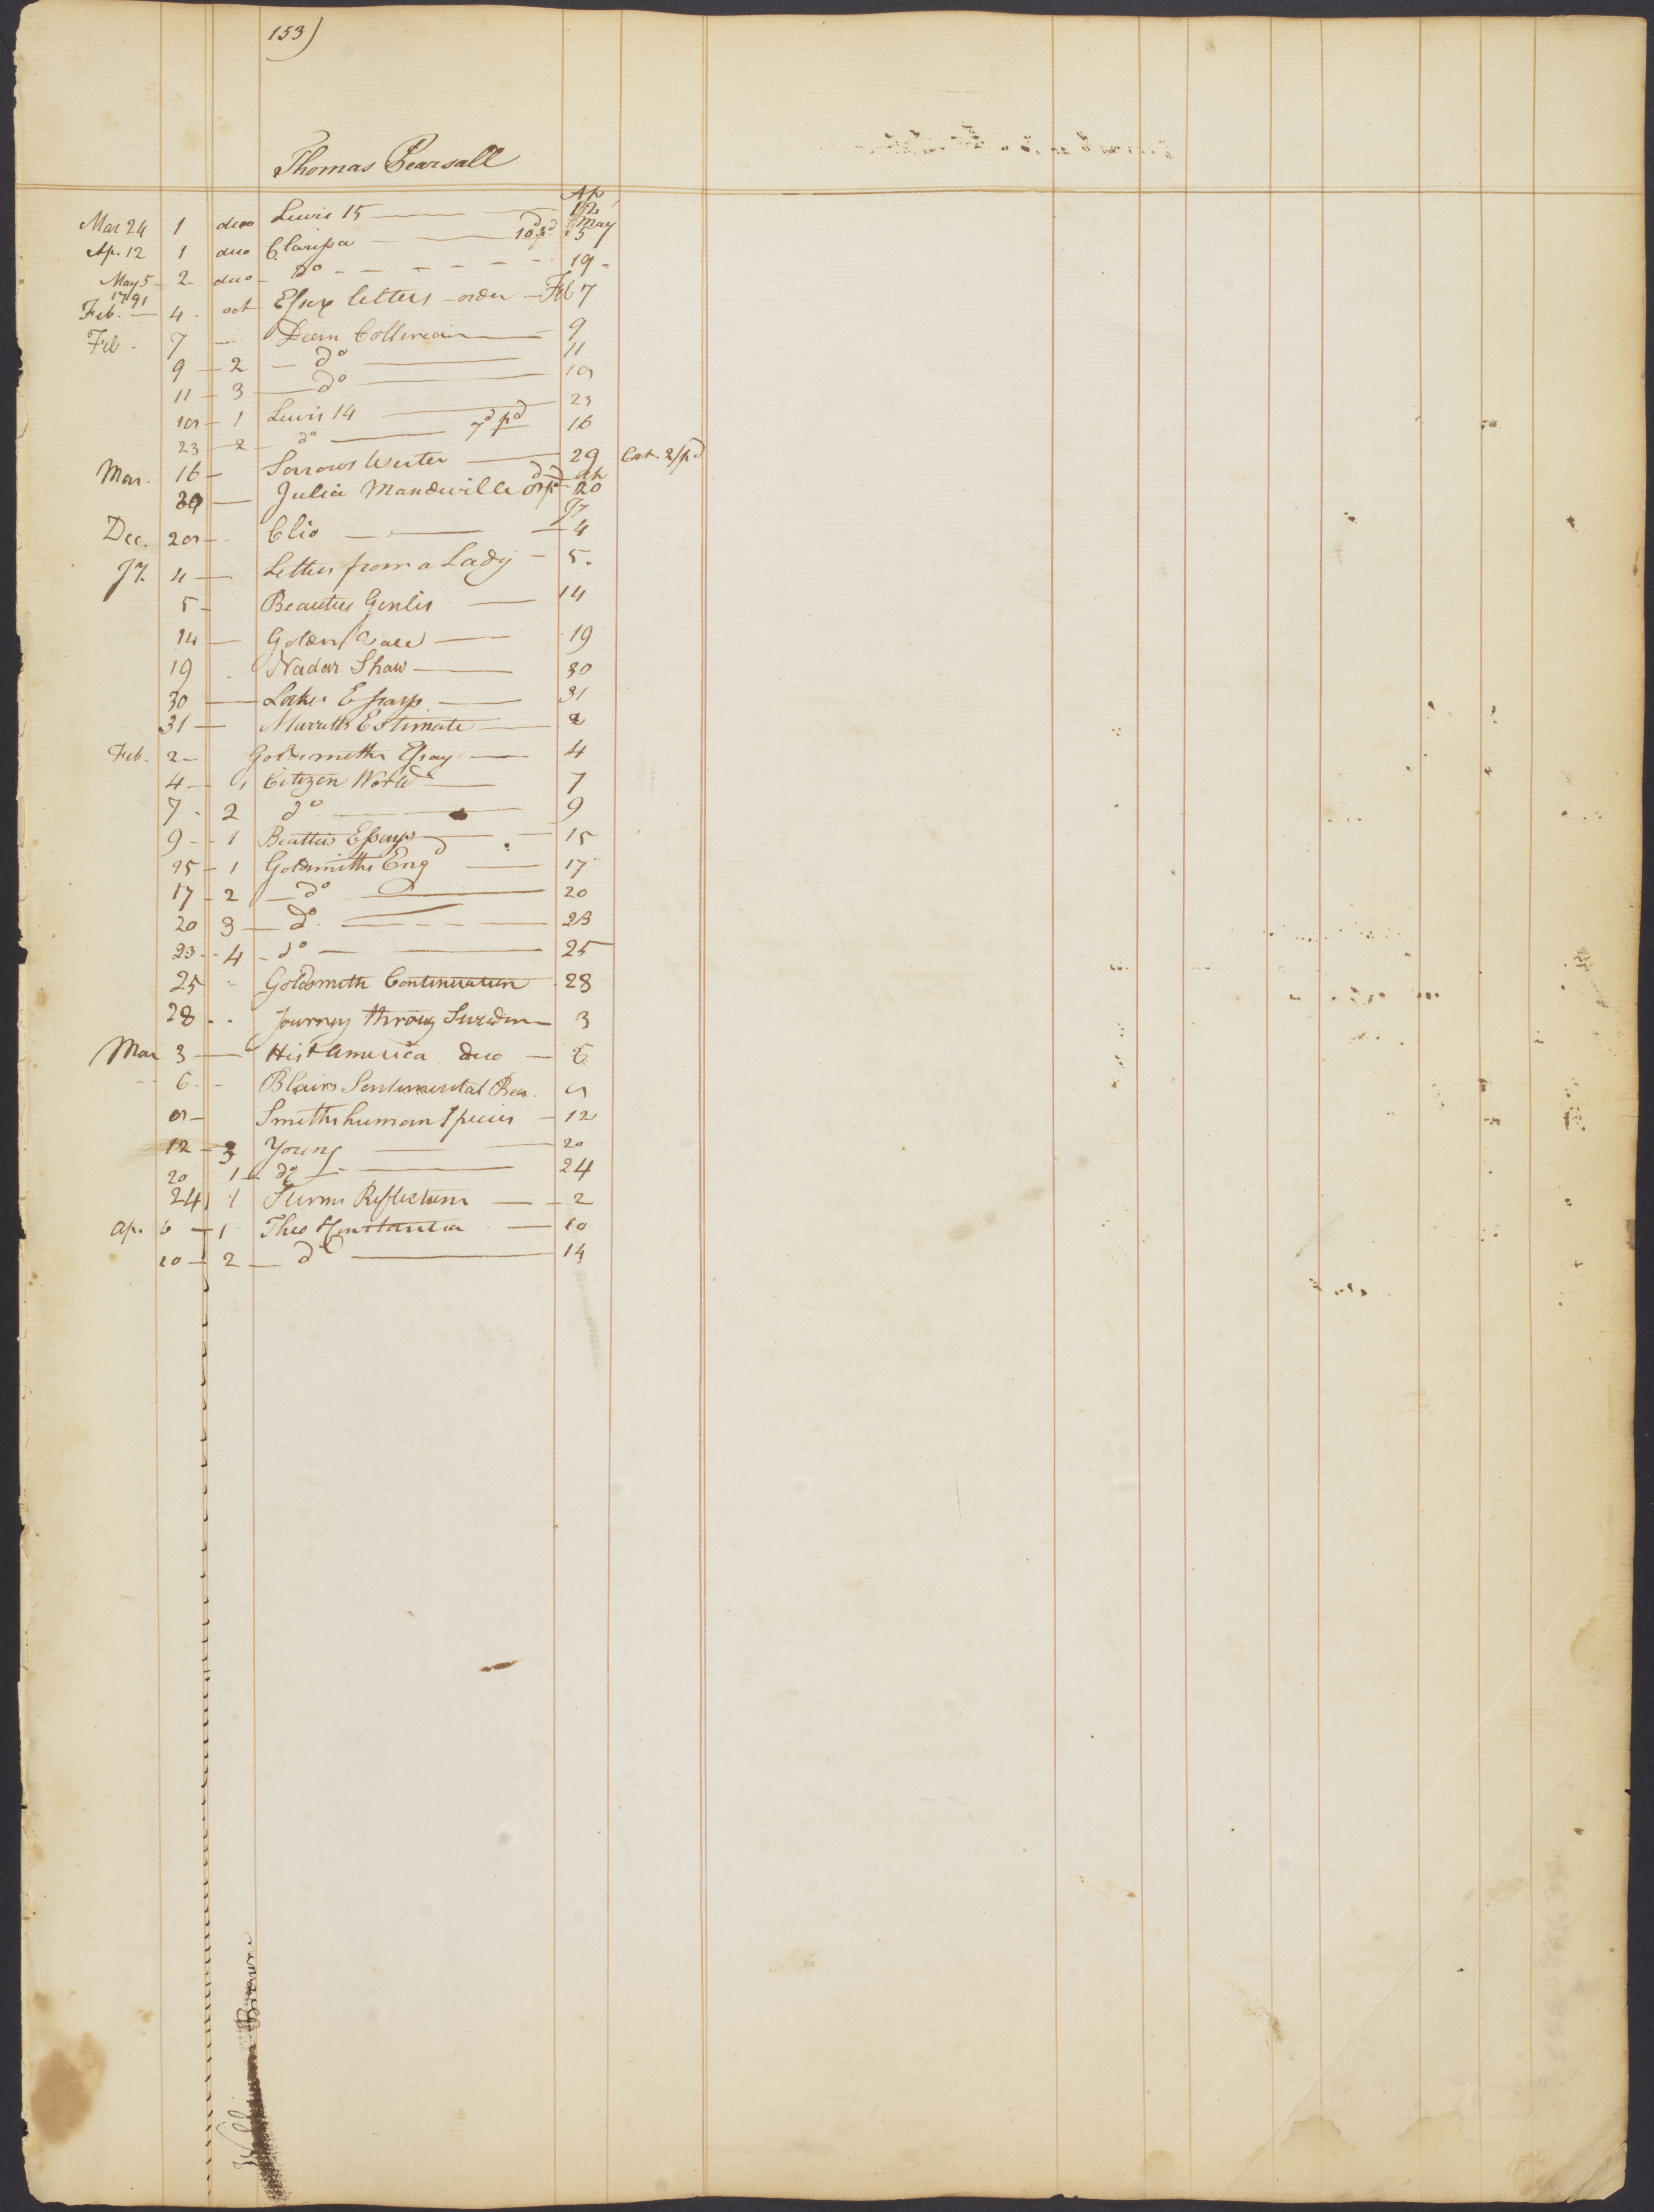 153)
Thomas Pearsall
Ap
Mar 24 1 duo Lewis 15 — 12
May
Ap. 12 1 duo Clarissa — 10d pd 5
May 5 - 2 - duo - Do - - - - - - 19 -
1791
Feb. — 4 - oct Essex letters - order — Feb 7
Feb - 7 — Dean Collerain — 9
9 — 2 — do — 11
11 — 3 — do —
1 Lewis 14 — 23
23 — 2 — do — 7d pd 16
Mar. 16 — Sorrows Werter — 29 Cat. 2/pd
Ap
Julia Mandeville pd 20
Dec. Clio — 4
4 — Letters from a Lady — 5.
5 - Beauties Genlis — 14
14 — Golden — 19
19 - Nadar Shaw — 30
30 — Lockes Essays — 31
31 — Estimate — 2
Feb. 2 — Goldsmiths Essay — 4
4 — 1 Citizen World — 7
7 - 2 do — 9
9 - 1 Beatties Essays — 15
15 — 1 Goldsmiths Engd — 17
17 — 2 — do — 20
20 3 — do. — 23
23 - - 4 - do — 25
25 - Goldsmith Continuation 28
28 - - Journey throug Sweden — 3
Mar 3 — Hist America duo — 6
6 - - Blairs Sentimental Bea.
Smiths human Species — 12
12 — 3 Young — 20
20 1 — do — 24
24 1 Sturms Reflections — 2
Ap. 6 — 1 Theo Constantia — 10
10 — 2 — do — 14
William Brown